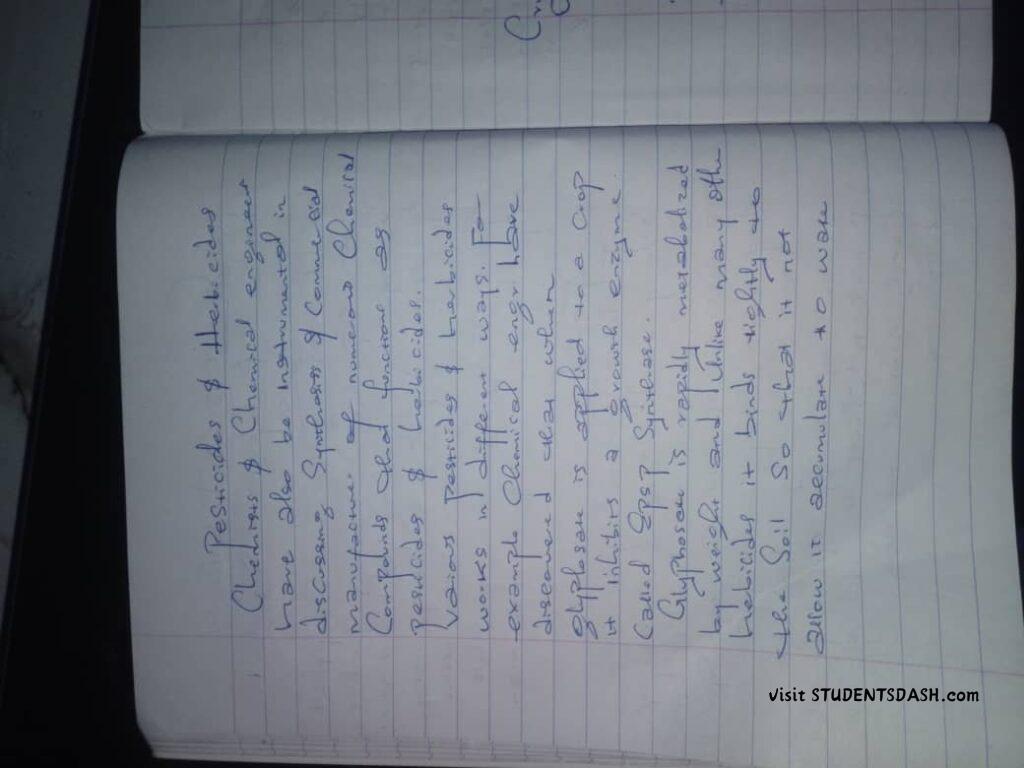 Pesticides & Hebicides
Chemists & Chemical engineers
have also be Instrumental in
discussing Synthesis & Commercial
manufacture of numerous Chemical
Compounds that function as
Pesticides & herbicides.
Various Pesticides & herbicides
works in different ways. For
example Chemical engr. have
discovered that when
glyphosate is applied to a Crop
it inhibits a growth enzyme
Called EPSP Synthase.
Glyphosate is rapidly metabolized
by weight and Unlike many other
hebicides it binds tightly to
the Soil So that it not
allow it accumulate to water
Visit STUDENTSDASH.com